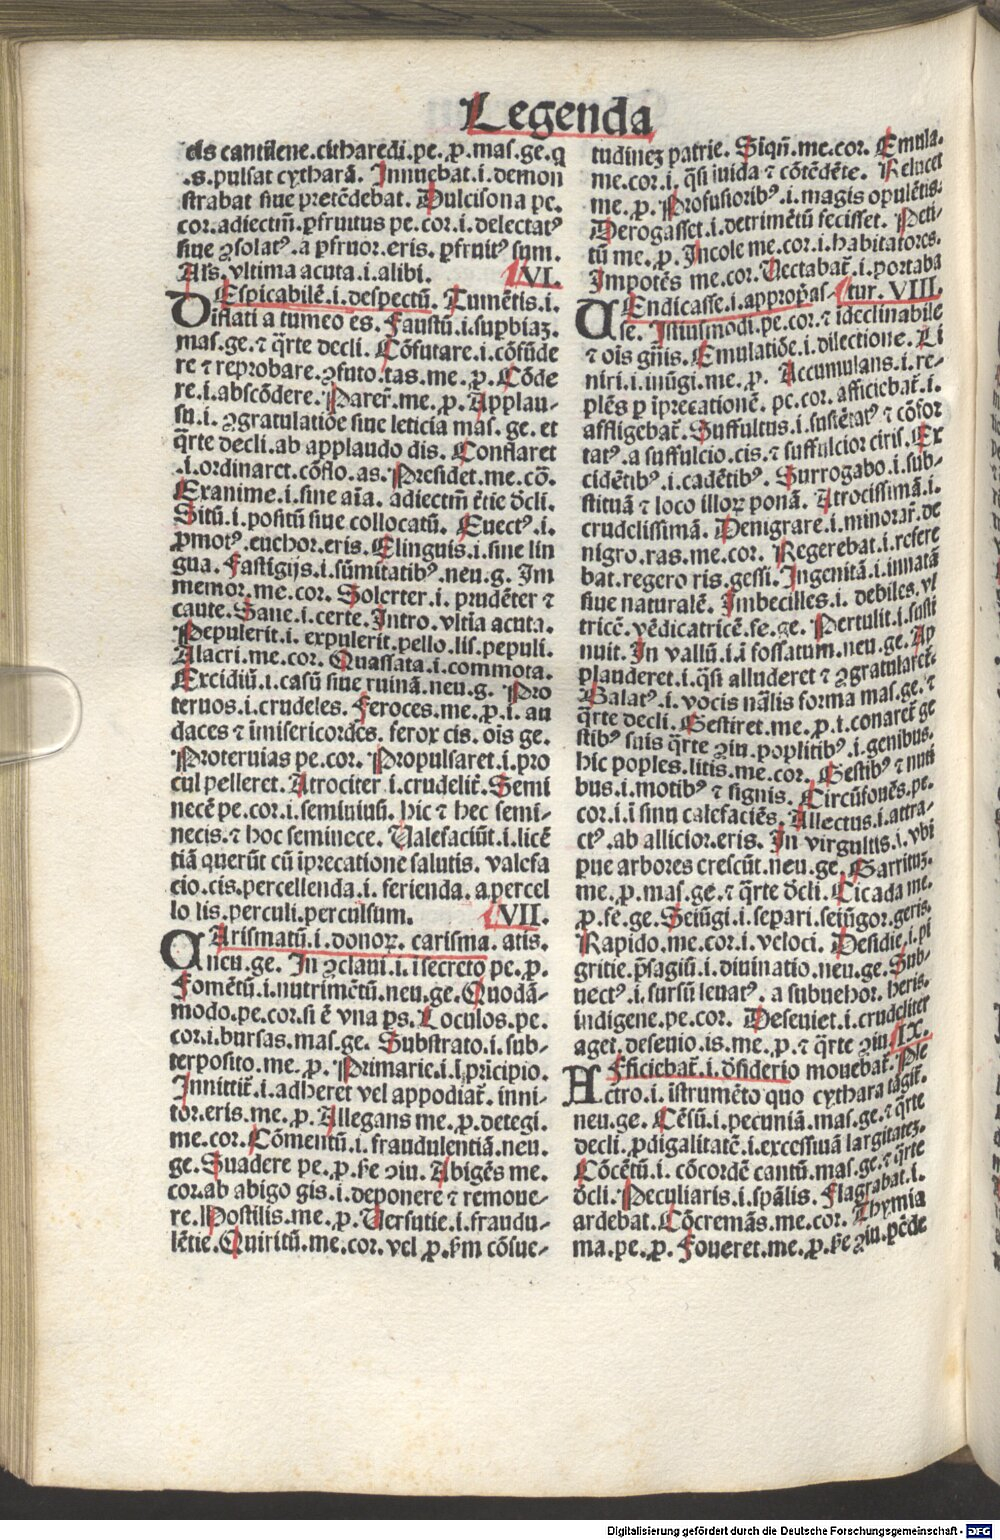 Legenda
cls cantilene. citharedi. pe. ꝓ. mas. ge. q
.s. pulsat cytharã. Innuebat .i. demon
strabat siue pretẽdebat. Dulcisona pe.
cor. adiectiuũ. ꝑfruitus pe. cor .i. delectatꝰ
siue ꝯsolatꝰ. a ꝑfruor. eris. ꝑfruitꝰ sum.
Aľs. vltima acuta .i. alibi. VI.
DEspicabilẽ .i. despectũ. Tumẽtis .i.
inflati a tumeo es. Faustũ .i. supbiaꝫ.
mas. ge. ⁊ q̃rte decli. Cõfutare .i. cõfũde
re ⁊ reprobare. ꝯfuto. tas. me. ꝓ. Cõde
re .i. abscõdere. Parer̃. me. ꝓ. Applau-
su .i. ꝯgratulatiõe siue leticia mas. ge. et
q̃rte decli. ab applaudo dis. Conflaret
.i. ordinaret. cõflo. as. Presidet. me. cõ.
Exanime .i. sine aĩa. adiectiũ ẽtie ďcli.
Sitũ .i. positũ siue collocatũ. Euectꝰ .i.
ꝓmotꝰ. euehor. eris. Elinguis .i. sine lin
gua. Fastigijs .i. sũmitatibꝰ. neu. g. Im
memor. me. cor. Solerter .i. prudẽter ⁊
caute. Sane .i. certe. Intro. vltia acuta.
Pepulerit .i. expulerit. pello. lis. pepuli.
Alacri. me. cor. Quassata .i. commota.
Excidiũ .i. casũ siue ruinã. neu. g. Pro
teruos .i. crudeles. Feroces. me. ꝓ. i. au
daces ⁊ ĩmisericordes. ferox cis. oĩs ge.
Proteruias pe. cor. Propulsaret .i. pro
cul pelleret. Atrociter .i. crudelit̃. Semi
necẽ pe. cor. i. seminiuũ. hic ⁊ hec semi-
necis. ⁊ hoc seminece. Valefaciũt .i. licẽ
tiã querũt cũ ĩprecatione salutis. valefa
cio. cis. percellenda .i. ferienda. a percel
lo lis. perculi. perculsum. VII.
CArismatũ .i. donoꝝ. carisma. atis.
neu. ge. In ꝯclaui .i. ĩ secreto pe. ꝓ.
Fomẽtũ .i. nutrimẽtũ. neu. ge. Quodã-
modo. pe. cor. si ẽ vna ps. Loculos. pe.
cor. i. bursas. mas. ge. Substrato .i. sub-
terposito. me. ꝓ. Primarie .i. ĩ pricipio.
Innittit̃ .i. adheret vel appodiat̃. inni-
tor. eris. me. ꝓ. Allegans me. ꝓ. detegi.
me. cor. Cõmentũ .i. fraudulentiã. neu.
ge. Suadere pe. ꝓ. ẜe ꝯiu. Abigẽs me.
cor. ab abigo gis. i. deponere ⁊ remoue-
re. Postilis. me. ꝓ. Versutie .i. fraudu-
lẽtie. Quiritũ. me. cor. vel ꝓ. ẜm cõsue-
tudineꝫ patrie. Siqñ. me. cor. Emula-
me. cor. i. q̃si iuida ⁊ cõtẽdẽte. Relucet
me. ꝓ. Profusioribꝰ .i. magis opulẽtis.
Derogasset .i. detrimẽtũ fecisset. Peti-
tũ me. ꝓ. Incole me. cor. i. habitatores.
Impotẽs me. cor. Vectabat̃ .i. portaba
tur. VIII.
VEndicasse .i. appropas-
se. Istiusmodi. pe. cor. ⁊ ideclinabile
⁊ oĩs gñis. Emulatiõe .i. dilectione. Li
niri .i. inũgi. me. ꝓ. Accumulans .i. re-
plẽs ꝑ ĩprecationẽ. pe. cor. afficiebat̃ .i.
affligebat̃. Suffultus .i. sustẽtatꝰ ⁊ cõfor
tatꝰ. a suffulcio. cis. ⁊ suffulcior ciris. Ex
cidẽtibꝰ .i. cadẽtibꝰ. Surrogabo .i. sub-
stituã ⁊ loco illoꝝ ponã. Atrocissimã .i.
crudelissimã. Denigrare .i. minorar̃. de
nigro. ras. me. cor. Regerebat .i. refere
bat. regero ris. gessi. Ingenitã .i. innatã
siue naturalẽ. Imbecilles .i. debiles. vl
tricẽ. vẽdicatricẽ. fe. ge. Pertulit .i. susti
nuit. In vallũ .i. ĩ fossatum. neu. ge. Ap
plauderet .i. q̃si alluderet ⁊ ꝯgratularet̃.
Balatꝰ .i. vocis nãlis forma mas. ge. ⁊
q̃rte decli. Gestiret. me. ꝓ. i. conaret̃ ge
stibꝰ suis q̃rte ꝯiu. poplitibꝰ .i. genibus.
hic poples. litis. me. cor. Gestibꝰ ⁊ nuti
bus .i. motibꝰ ⁊ signis. Circũfouẽs. pe.
cor. i. ĩ sinu calefaciẽs. Allectus .i. attra-
ctꝰ. ab allicior. eris. In virgultis .i. vbi
pue arbores crescũt. neu. ge. Garrituꝫ.
me. ꝓ. mas. ge. ⁊ q̃rte ďcli. Cicada me.
ꝓ. fe. ge. Seiũgi .i. separi. seiũgor. geris.
Rapido. me. cor. i. veloci. Desidie .i. pi
gritie. p̃sagiũ .i. diuinatio. neu. ge. Sub-
uectꝰ .i. sursũ leuatꝰ. a subuehor. heris.
indigene. pe. cor. Deseuiet .i. crudeliter
aget. deseuio. is. me. ꝓ. ⁊ q̃rte ꝯiu. IX.
AFficiebat̃ .i. ďsiderio mouebat̃. Ple
ctro .i. ĩstrumẽto quo cythara tãgit̃.
neu. ge. Cẽsũ .i. pecuniã. mas. ge. ⁊ q̃rte
decli. ꝓdigalitatẽ .i. excessiuã largitateꝫ.
Cõcẽtũ .i. cõcordẽ cantũ. mas. ge. ⁊ q̃rte
ďcli. Peculiaris .i. spãlis. Flagrabat .i.
ardebat. Cõcremãs. me. cor. Thymia
ma. pe. ꝓ. Foueret. me. ꝓ. ẜe ꝯiu. pẽde
Digitalisierung gefördert durch die Deutsche Forschungsgemeinschaft - DFG